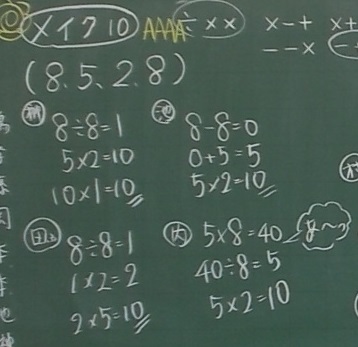 メイク10 AAAA ÷×× ×-+ ×+
--× -
(8.5.2.8)
8÷8=1
5×2=10
10×1=10
池
8-8=0
0+5=5
5×2=10
田
8÷8=1
1×2=2
2×5=10
内
5×8=40
40÷8=5
5×2=10